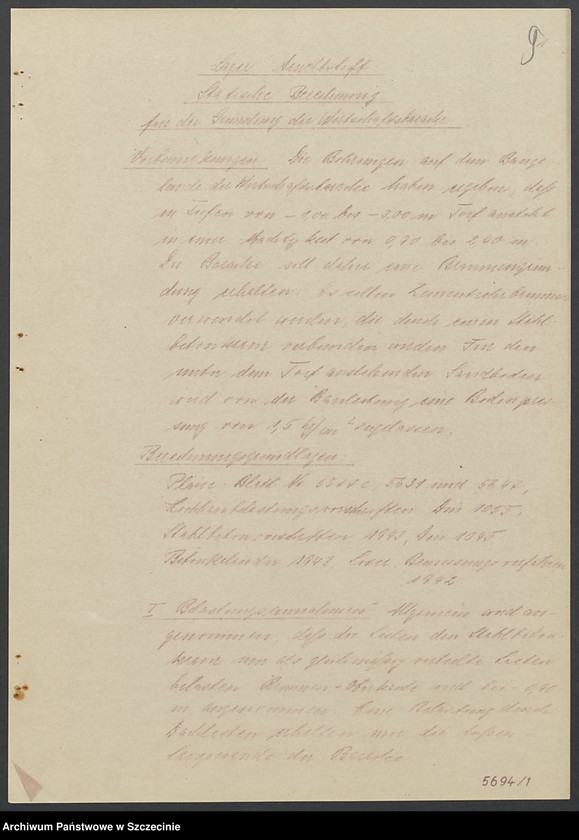 9
Lager Arndtstift
Statische Berechnung
für die Gründung der Wirtschaftsbaracke
Vorbemerkungen. Die Bohrungen auf dem Bauge-
lände der Wirtschaftsbaracke haben ergeben, daß
in Tiefen von - 1,00 bis - 3,00 m Torf ansteht
in einer Mächtigkeit von 0,70 bis 2,00 m.
Die Baracke soll daher eine Brunnengrün-
dung erhalten. Es sollen Zementrohrbrunnen
verwendet werden, die durch einen Stahl-
betonkranz verbunden werden. Für den
unter dem Torf anstehenden Sandboden
wird von der Bauleitung eine Bodenpres-
sung von 1,5 kg/cm² zugelassen.
Berechnungsgrundlagen:
Pläne Blatt Nr 5631 und
Din 1055,
Stahlbetonvorschriften 1943, Din 1045
Betonkalender 1943. Löser, Bemessungsverfahren
1942
I Belastungsannahmen. Allgemein wird an-
genommen, daß die Lasten den Stahlbeton-
kranz nur als gleichmäßig verteilte Lasten
belasten. Brunnen-Oberkante wird bei - 0,40
m angenommen. Eine Belastung durch
Dachlasten erhalten nur die Außen-
längswände der Baracke.
5694/1
Archiwum Państwowe w Szczecinie